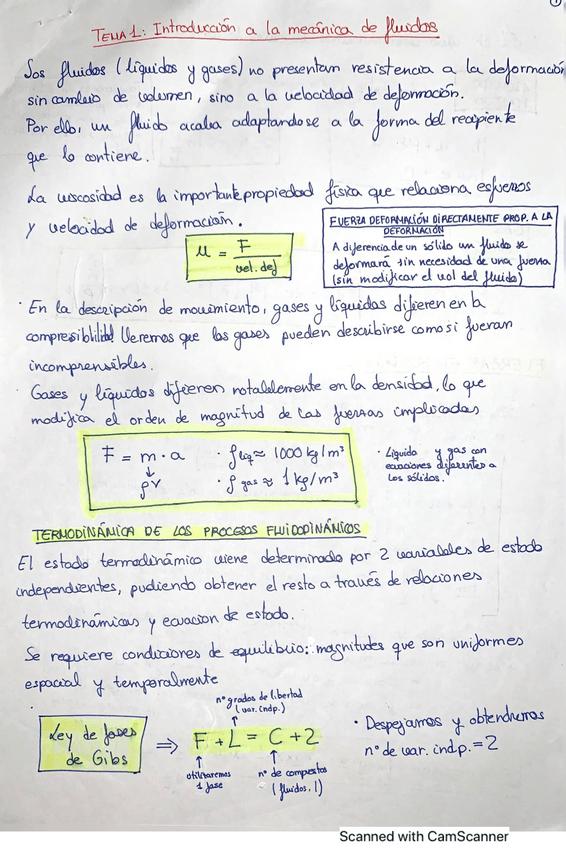 1
TEMA 1: Introducción a la mecánica de fluidos
Los fluidos (líquidos y gases) no presentan resistencia a la deformación
sin cambio de volumen, sino a la velocidad de deformación.
Por ello, un fluido acaba adaptandose a la forma del recipiente
que lo contiene.
La viscosidad es la importante propiedad física que relaciona esfuerzos
y velocidad de deformación.
μ = F / vel. def
FUERZA DEFORMACIÓN DIRECTAMENTE PROP. A LA
DEFORMACIÓN
A diferencia de un sólido un fluido se
deformará sin necesidad de una fuerza
(sin modificar el vol del fluido)
· En la descripción de movimiento, gases y líquidos difieren en la
compresiblilidad Veremos que los gases pueden describirse como si fueran
incomprensibles.
· Gases y líquidos difieren notablemente en la densidad, lo que
modifica el orden de magnitud de las fuerzas implicadas
F = m · a
↓
ρV
· ρ liq ≈ 1000 kg/m³
· ρ gas ≈ 1 kg/m³
· Líquido y gas con
ecuaciones diferentes a
los sólidos.
TERMODINÁMICA DE LOS PROCESOS FLUIDODINÁMICOS
El estado termodinámico viene determinado por 2 variables de estado
independientes, pudiendo obtener el resto a través de relaciones
termodinámicas y ecuacion de estado.
Se requiere condiciones de equilibrio: magnitudes que son uniformes
espacial y temporalmente
Ley de fases
de Gibs
⇒
nº grados de libertad
(var. indp.)
↑
F + L = C + 2
↑
utilizaremos
1 fase
↑
nº de compuestos
(fluidos, 1)
· Despejamos y obtendremos
nº de var. indp. = 2
Scanned with CamScanner